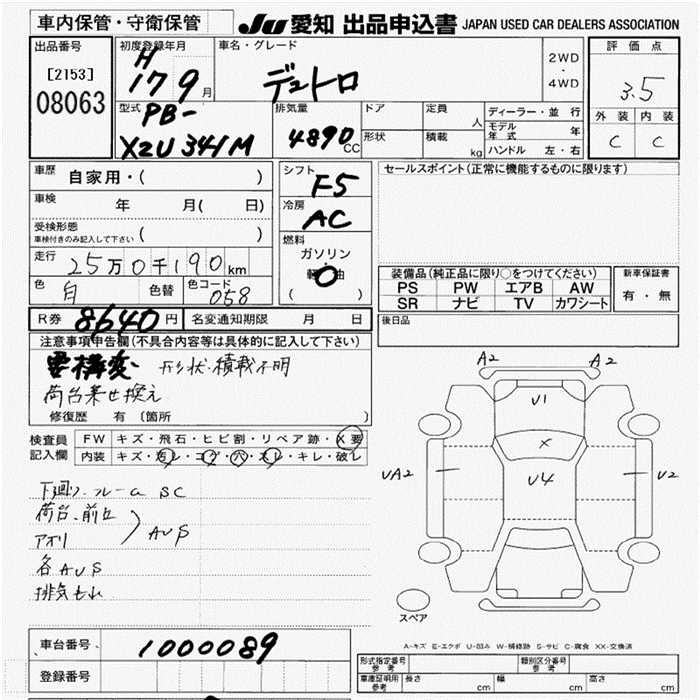 車内保管・守衛保管
JU 愛知 出品申込書 JAPAN USED CAR DEALERS ASSOCIATION
出品番号
[2153]
08063
初度登録年月
H
17 9 月
車名・グレード
デュトロ
2WD
・
4WD
評価点
3.5
外装 内装
C C
型式
PB-
XZU341M
排気量
4890 CC
ドア
形状
定員
人
積載
kg
ディーラー・並行
モデル年式 年
ハンドル 左・右
車歴 自家用・( )
車検 年 月( 日)
受検形態
車検付きのみ記入して下さい ( )
走行 25万0千190 km
色 白 色替 色コード 058
シフト
F5
冷房
AC
燃料
ガソリン
軽油
( )
セールスポイント(正常に機能するものに限ります)
装備品(純正品に限り○をつけてください)
PS PW エアB AW
SR ナビ TV カワシート
新車保証書
有・無
R券 8640 円 名変通知期限 月 日
後日品
注意事項申告欄(不具合内容等は具体的に記入して下さい)
要構変 形状・積載不明
荷台乗せ換え
修復歴 有 〔箇所 〕
検査員
記入欄
FW キズ・飛石・ヒビ割・リペア跡・X要
内装 キズ・汚レ・コゲ・穴・スレ・キレ・破レ
下廻り.フレームSC
荷台.前立
アオリ
AUS
各AUS
排気もれ
A2 A2
U1
X
UA2 U4 U2
スペア
A-キズ E-エクボ U-凹み W-補修跡 S-サビ C-腐食 XX-交換済
車台番号 1000089
登録番号
形式指定番号
参考
類別区分番号
参考
車庫証明用
参考
長さ cm 幅 cm 高さ cm